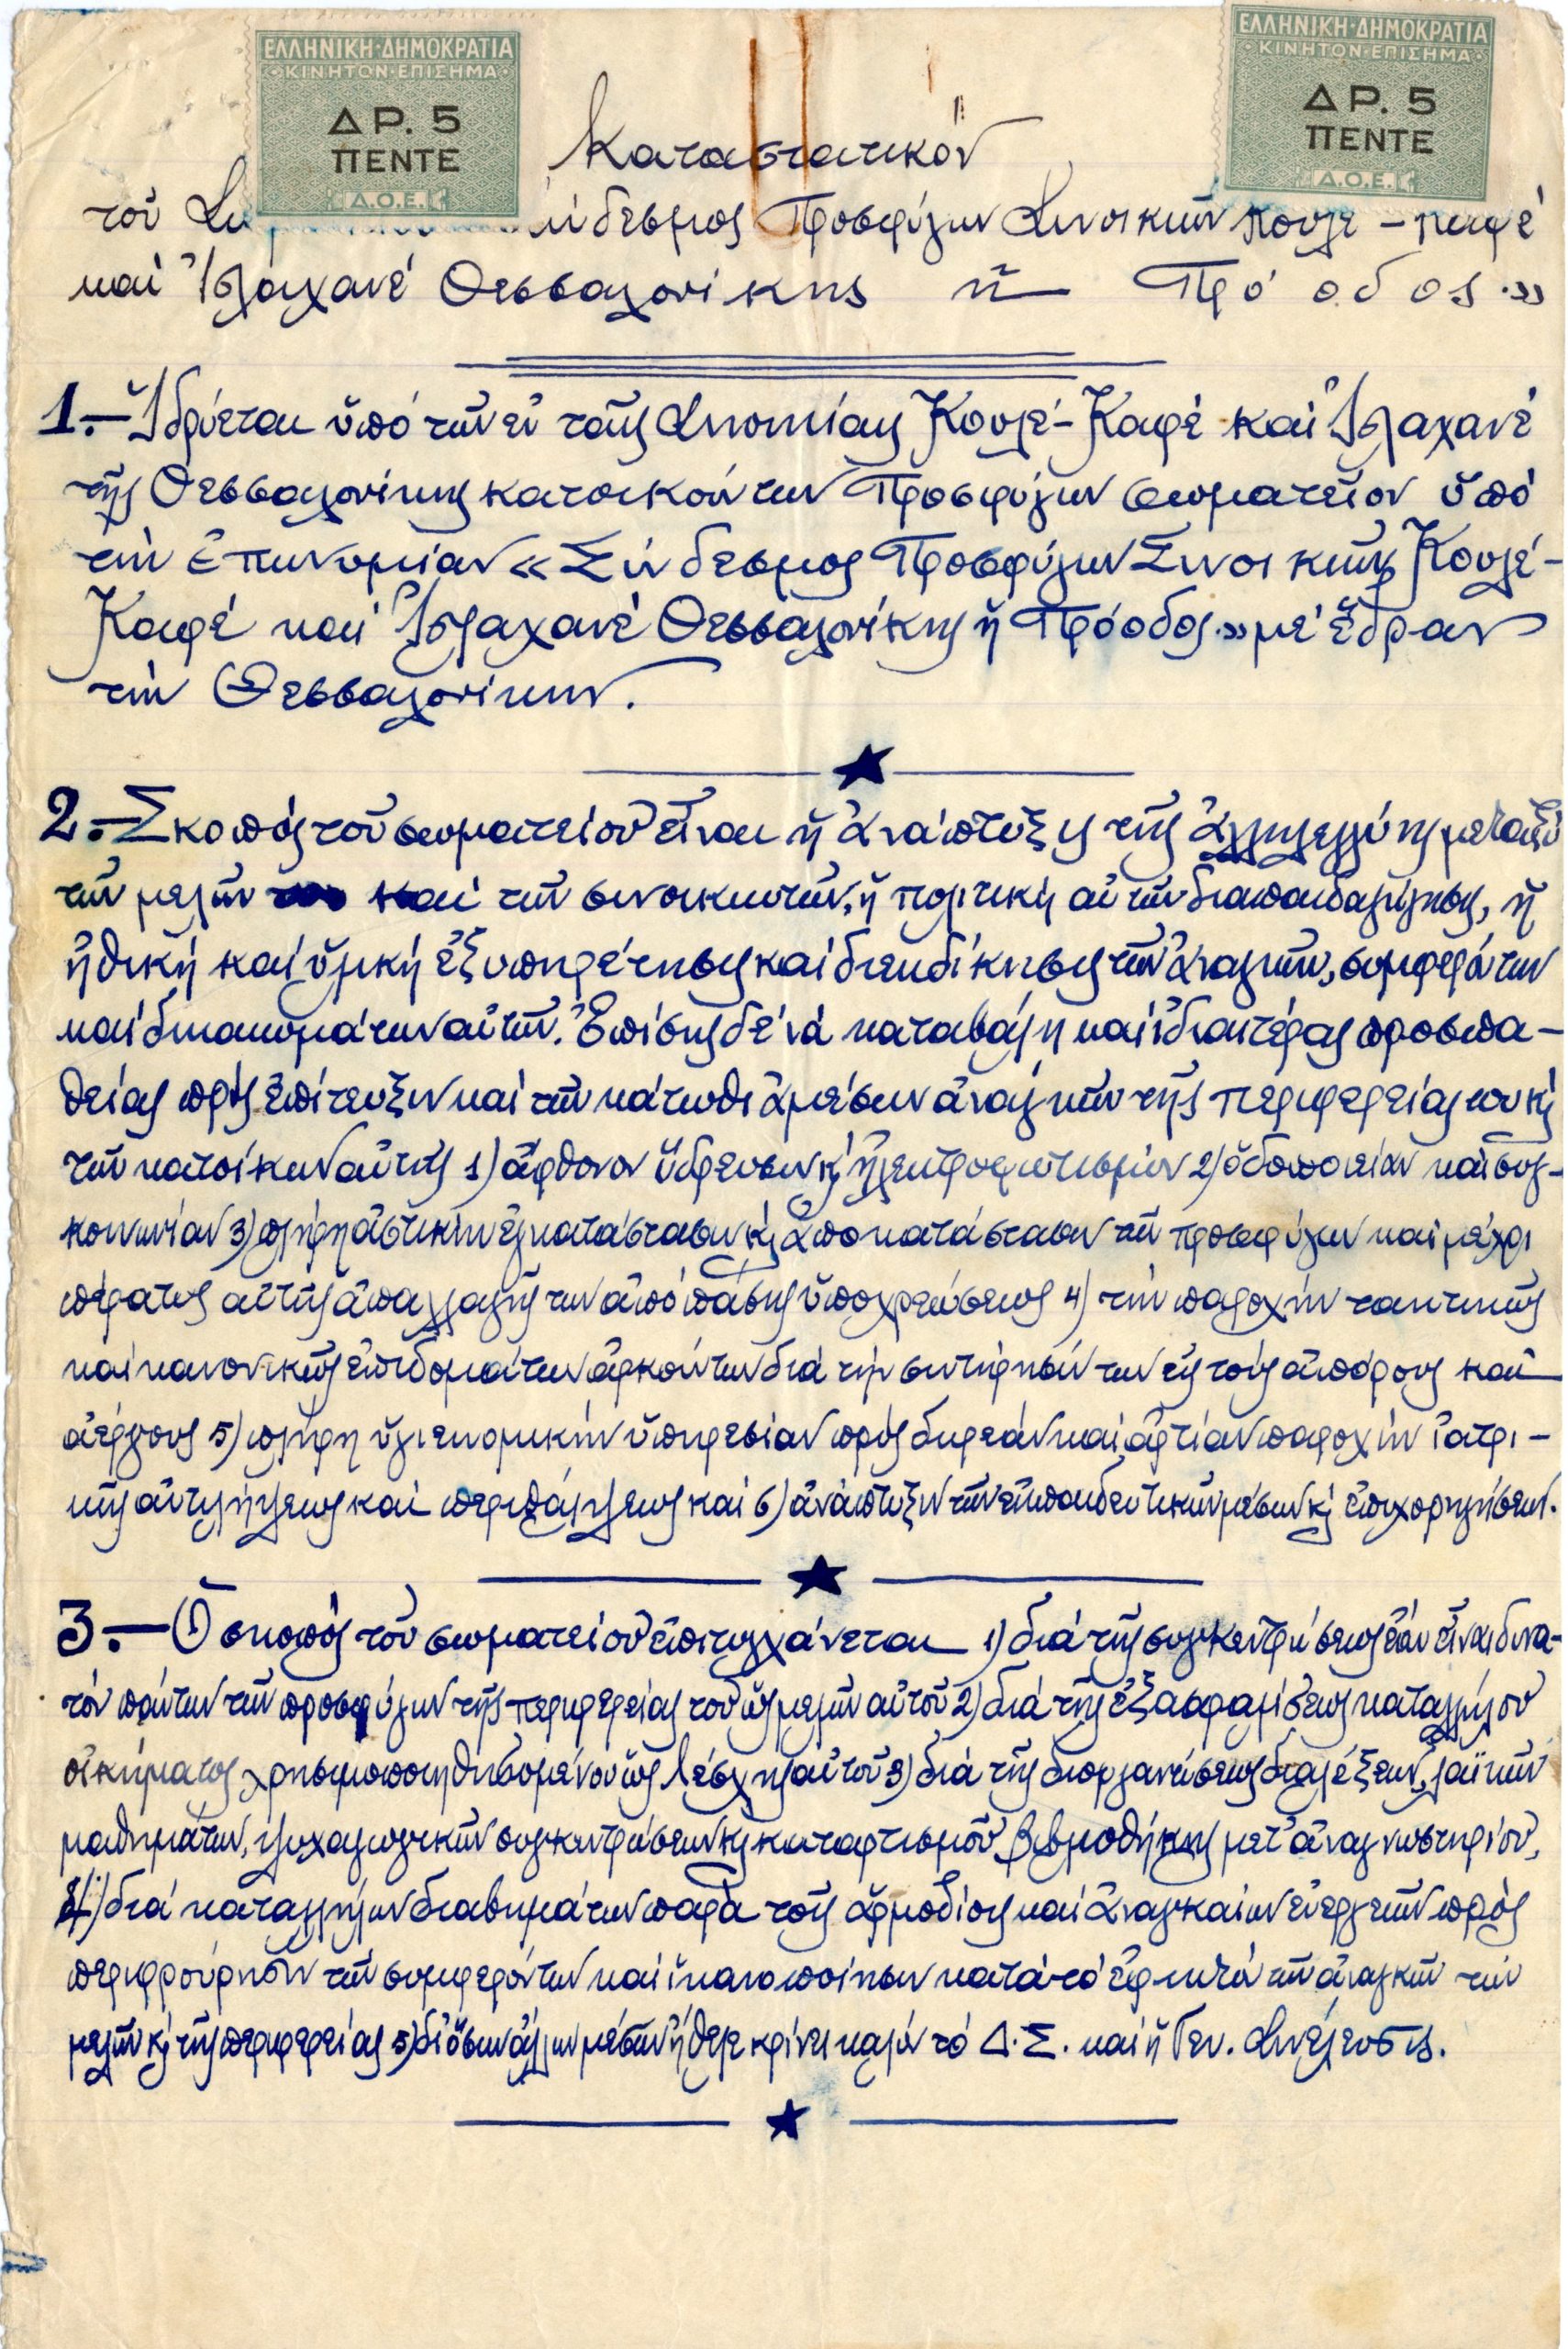 ΕΛΛΗΝΙΚΗ·ΔΗΜΟΚΡΑΤΙΑ
ΚΙΝΗΤΟΝ·ΕΠΙΣΗΜΑ
ΔΡ. 5
ΠΕΝΤΕ
Δ.Ο.Ε.
ΕΛΛΗΝΙΚΗ·ΔΗΜΟΚΡΑΤΙΑ
ΚΙΝΗΤΟΝ·ΕΠΙΣΗΜΑ
ΔΡ. 5
ΠΕΝΤΕ
Δ.Ο.Ε.
Καταστατικόν
τοῦ Προσφύγων Συνοικιῶν Κουλέ – Καφέ
καί Ἰσλαχανέ Θεσσαλονίκης ἡ Πρόοδος.»
1.– Ἱδρύεται ὑπό τῶν ἐν ταῖς Συνοικίαις Κουλέ-Καφέ καί Ἰσλαχανέ
τῆς Θεσσαλονίκης κατοικούντων Προσφύγων σωματεῖον ὑπό
τήν ἐπωνυμίαν «Σύνδεσμος Προσφύγων Συνοικιῶν Κουλέ-
Καφέ καί Ἰσλαχανέ Θεσσαλονίκης ἡ Πρόοδος.» μέ ἕδραν
τήν Θεσσαλονίκην.
2.– Σκοπός τοῦ σωματείου εἶναι ἡ ἀνάπτυξις τῆς ἀλληλεγγύης μεταξύ
τῶν μελῶν καί τῶν συνοικιωτῶν, ἡ πολιτική αὐτῶν διαπαιδαγώγησις, ἡ
ἠθική καί ὑλική ἐξυπηρέτησις καί διεκδίκησις τῶν ἀναγκῶν, συμφερόντων
καί δικαιωμάτων αὐτῶν. Ἐπίσης δέ νά καταβάλῃ καί ἰδιαιτέρας προσπα-
θείας πρός ἐπίτευξιν καί τῶν κάτωθι ἀμέσων ἀναγκῶν τῆς περιφερείας του κ̀
τῶν κατοίκων αὐτῆς 1) ἄφθονον ὕδρευσιν κ̀ ἠλεκτροφωτισμόν 2) ὁδοποιείαν καί συγ-
κοινωνίαν 3) πλήρη ἀστικήν ἐγκατάστασιν κ̀ ἀποκατάστασιν τῶν προσφύγων καί μέχρι
πέρατος αὐτῆς ἀπαλλαγῆς των ἀπό πάσης ὑποχρεώσεως 4) τήν παροχήν τακτικῶς
καί κανονικῶς ἐπιδομάτων ἀρκούντων διά τήν συντήρησίν των εἰς τούς ἀπόρους καί
ἀέργους 5) πλήρη ὑγιεινομικήν ὑπηρεσίαν πρός δωρεάν καί ἀρτίαν παροχήν ἰατρι-
κῆς ἀντιλήψεως καί περιθάλψεως καί 6) ἀνάπτυξιν τῶν ἐκπαιδευτικῶν μέσων κ̀ ἐπιχορηγήσεων.
3.– Ὁ σκοπός τοῦ σωματείου ἐπιτυγχάνεται 1) διά τῆς συγκεντρώσεως ἐάν εἶναι δυνα-
τόν πάντων τῶν προσφύγων τῆς περιφερείας του ὡς μελῶν αὐτοῦ 2) διά τῆς ἐξασφαλίσεως καταλλήλου
οἰκήματος χρησιμοποιηθησομένου ὡς λέσχης αὐτοῦ 3) διά τῆς διοργανώσεως διαλέξεων, λαϊκῶν
μαθημάτων, ψυχαγωγικῶν συγκεντρώσεων κ̀ καταρτισμοῦ βιβλιοθήκης μετ᾽ ἀναγνωστηρίου,
4) διά καταλλήλων διαβημάτων παρά τοῖς ἁρμοδίοις καί ἀναγκαίων ἐνεργειῶν πρός
περιφρούρησιν τῶν συμφερόντων καί ἱκανοποίησιν κατά τό ἐφικτόν τῶν ἀναγκῶν τῶν
μελῶν κ̀ τῆς περιφερείας 5) δι᾽ ὅσων ἄλλων μέσων ἤθελε κρίνει καλόν τό Δ.Σ. καί ἡ Γεν. Συνέλευσις.